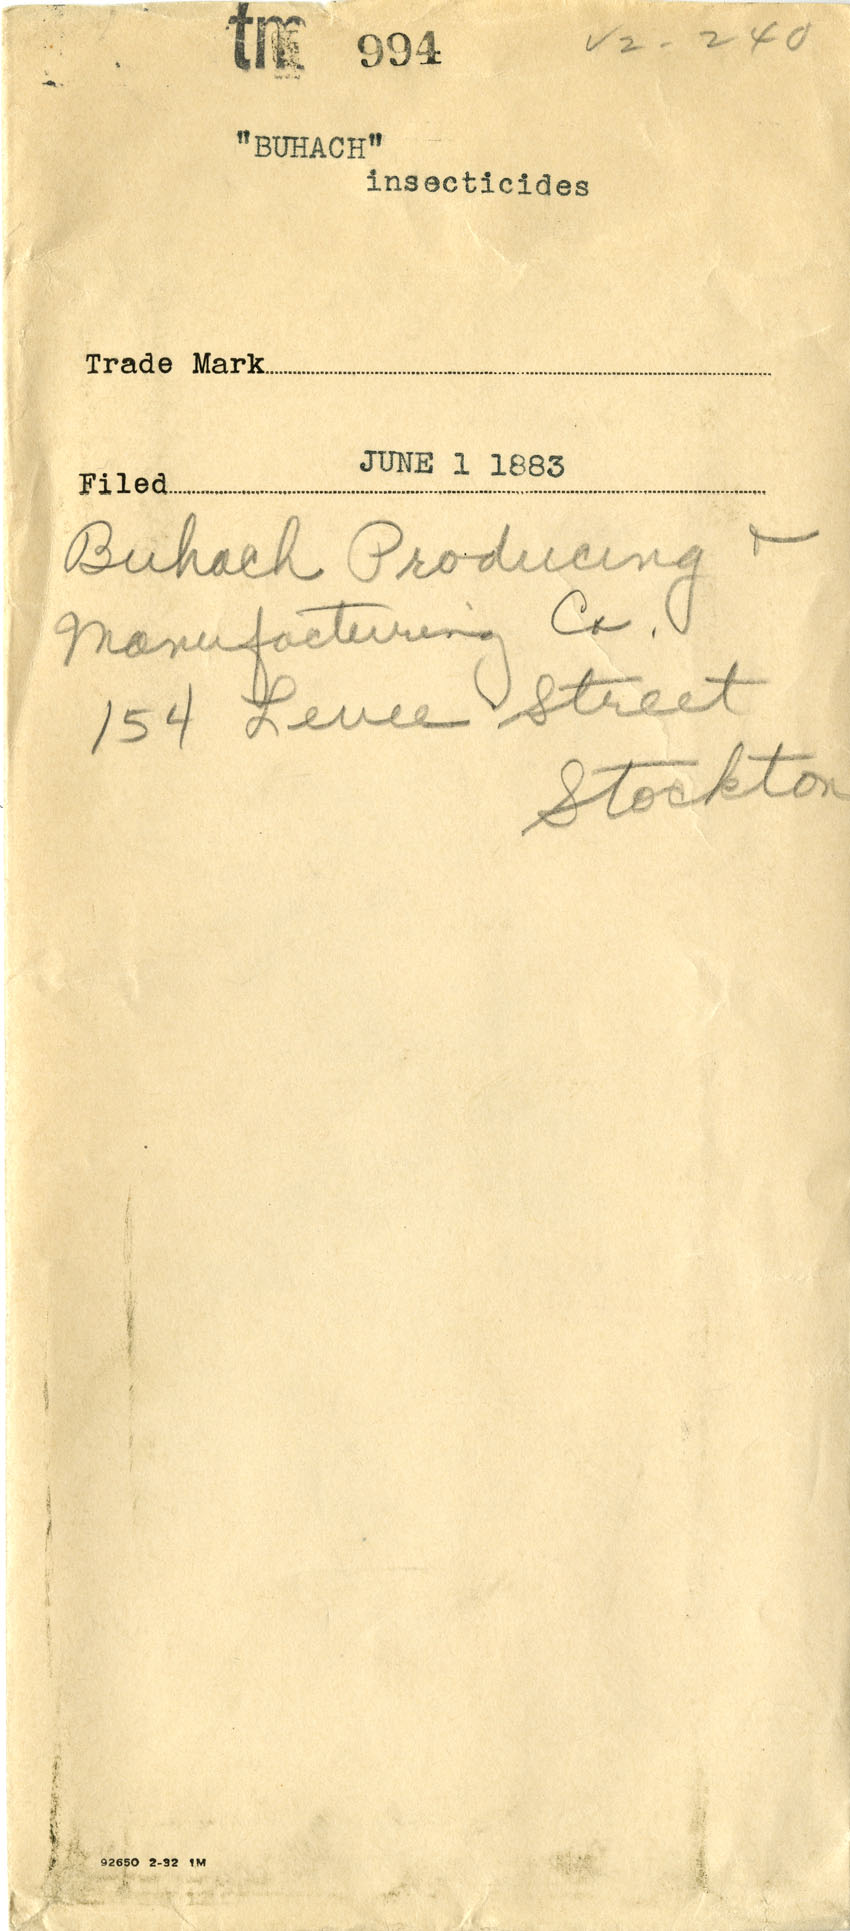 tm 994 V2-240
"BUHACH"
insecticides
Trade Mark
Filed JUNE 1 1883
Buhach Producing &
Manufacturing Co.
154 Levee Street
Stockton
92650 2-32 1M